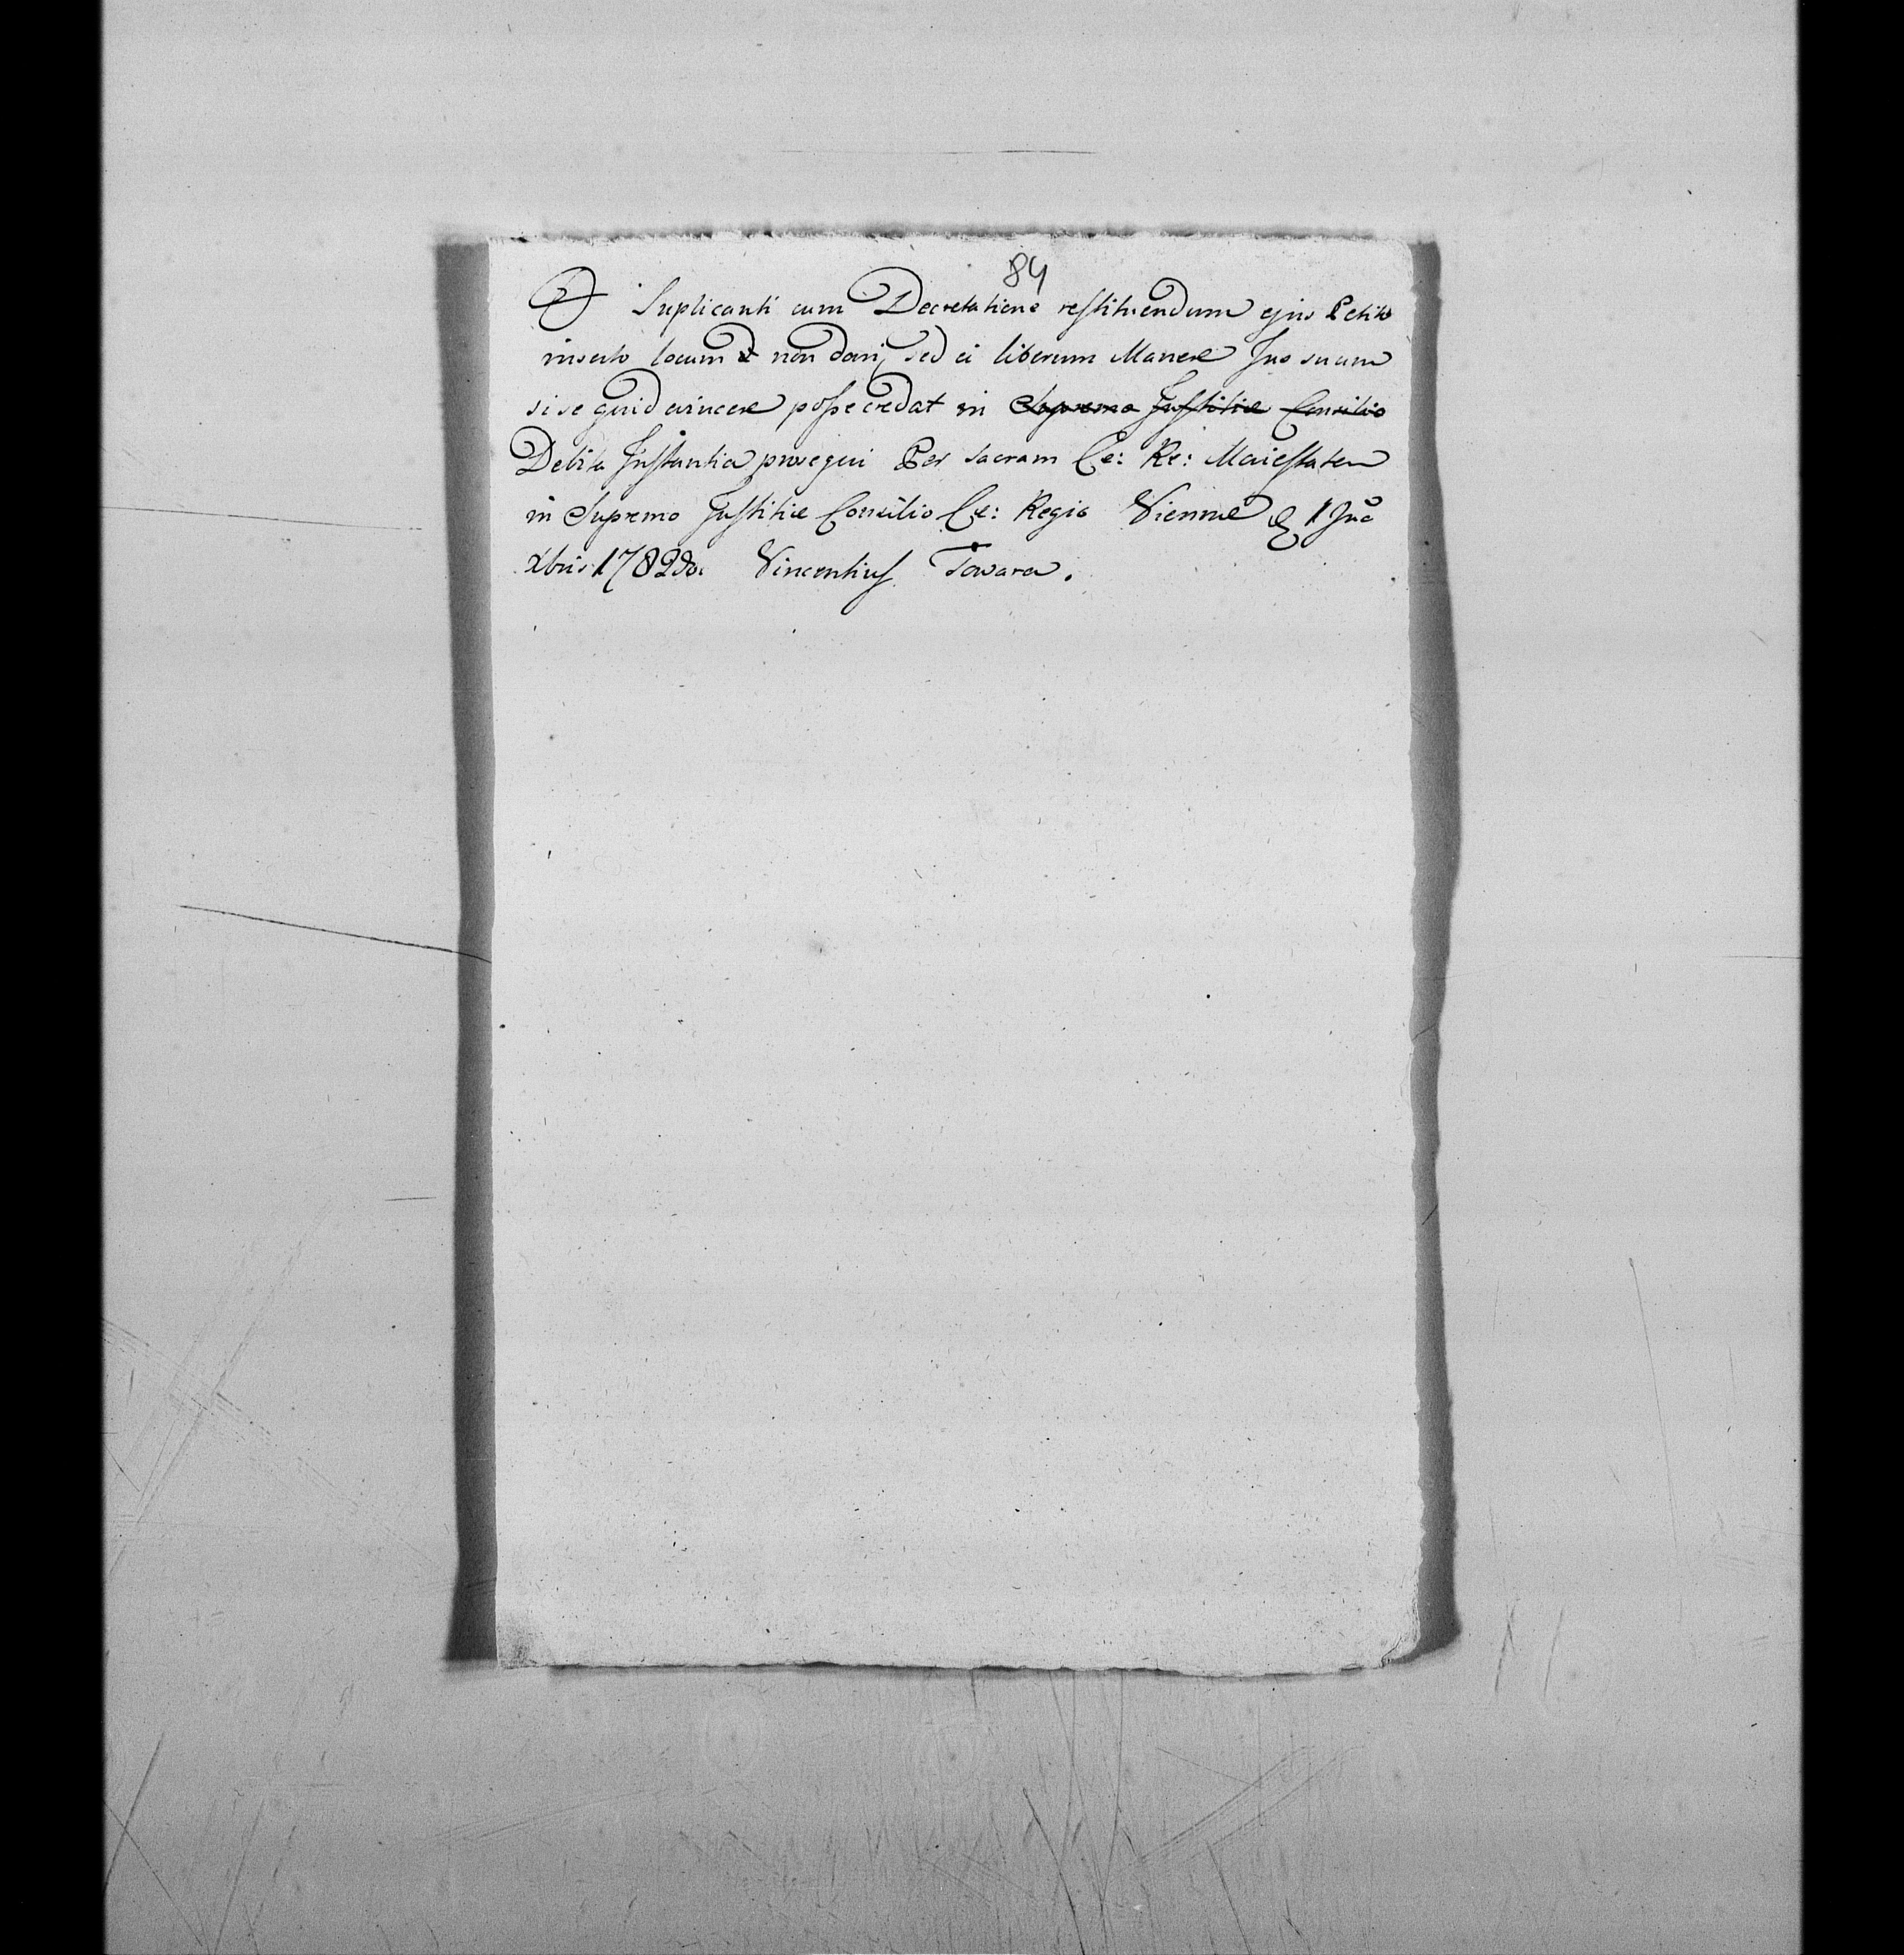 84
Suplicanti cum Decretatione restituendum ejus Petito
inserto locum non dari, sed ei liberum Manere Jus suum
si se quid evincere posse credat in Supremo Justitiæ Consilio
Debita Instantia prosequi Per sacram Ce: Re: Maiestatem
in Supremo Justitiæ Consilio Ce: Regio Viennæ 1
Xbris 1782do. Vincentius Tavara.